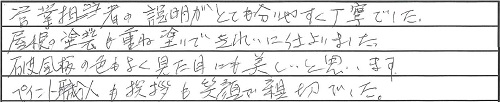 営業担当者の説明がとても分りやすく丁寧でした。
屋根の塗装も重ね塗りできれいに仕上りました。
破風板の色もよく見た目にも美しいと思います
ペイント職人も挨拶も笑顔で親切でした。